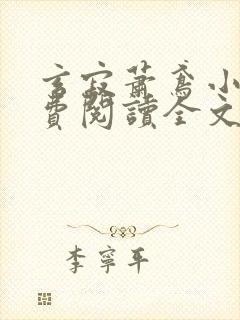 言寂蕭鳶小
費閱讀全文
李寧平